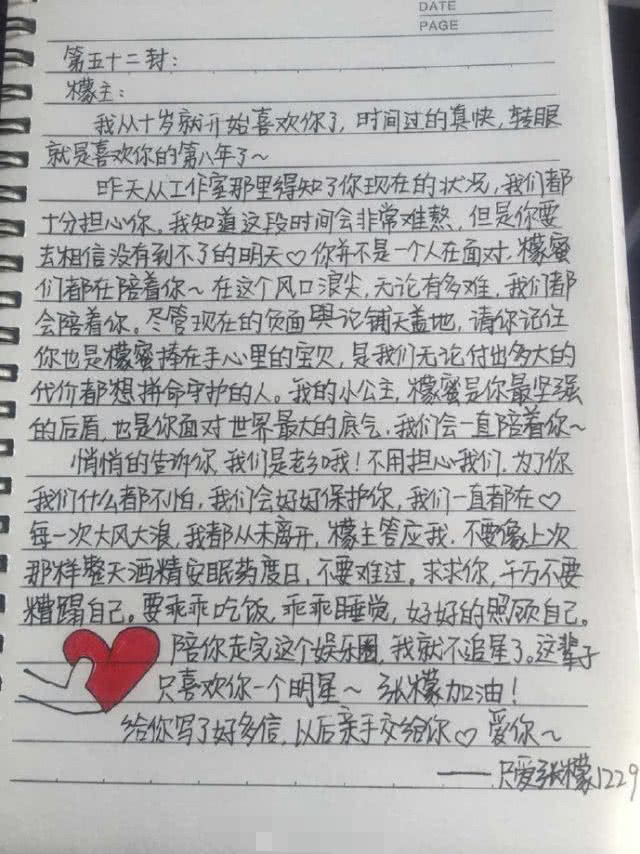 DATE
PAGE
第五十二封：
檬主：
我从十岁就开始喜欢你了，时间过的真快，转眼
就是喜欢你的第八年了～
昨天从工作室那里得知了你现在的状况，我们都
十分担心你。我知道这段时间会非常难熬，但是你要
去相信没有到不了的明天♡你并不是一个人在面对，檬蜜
们都在陪着你～在这个风口浪尖，无论有多难，我们都
会陪着你。尽管现在的负面舆论铺天盖地，请你记住
你也是檬蜜捧在手心里的宝贝，是我们无论付出多大的
代价都想拼命守护的人。我的小公主，檬蜜是你最坚强
的后盾，也是你面对世界最大的底气，我们会一直陪着你～
悄悄的告诉你，我们是老乡哦！不用担心我们，为了你
我们什么都不怕，我们会好好保护你，我们一直都在♡
每一次大风大浪，我都从未离开，檬主答应我，不要像上次
那样整天酒精安眠药度日，不要难过。求求你，千万不要
糟蹋自己。要乖乖吃饭，乖乖睡觉，好好的照顾自己。
陪你走完这个娱乐圈，我就不追星了。这辈子
只喜欢你一个明星～ 张檬加油！
给你写了好多信，以后亲手交给你♡ 爱你～
——只爱张檬1229